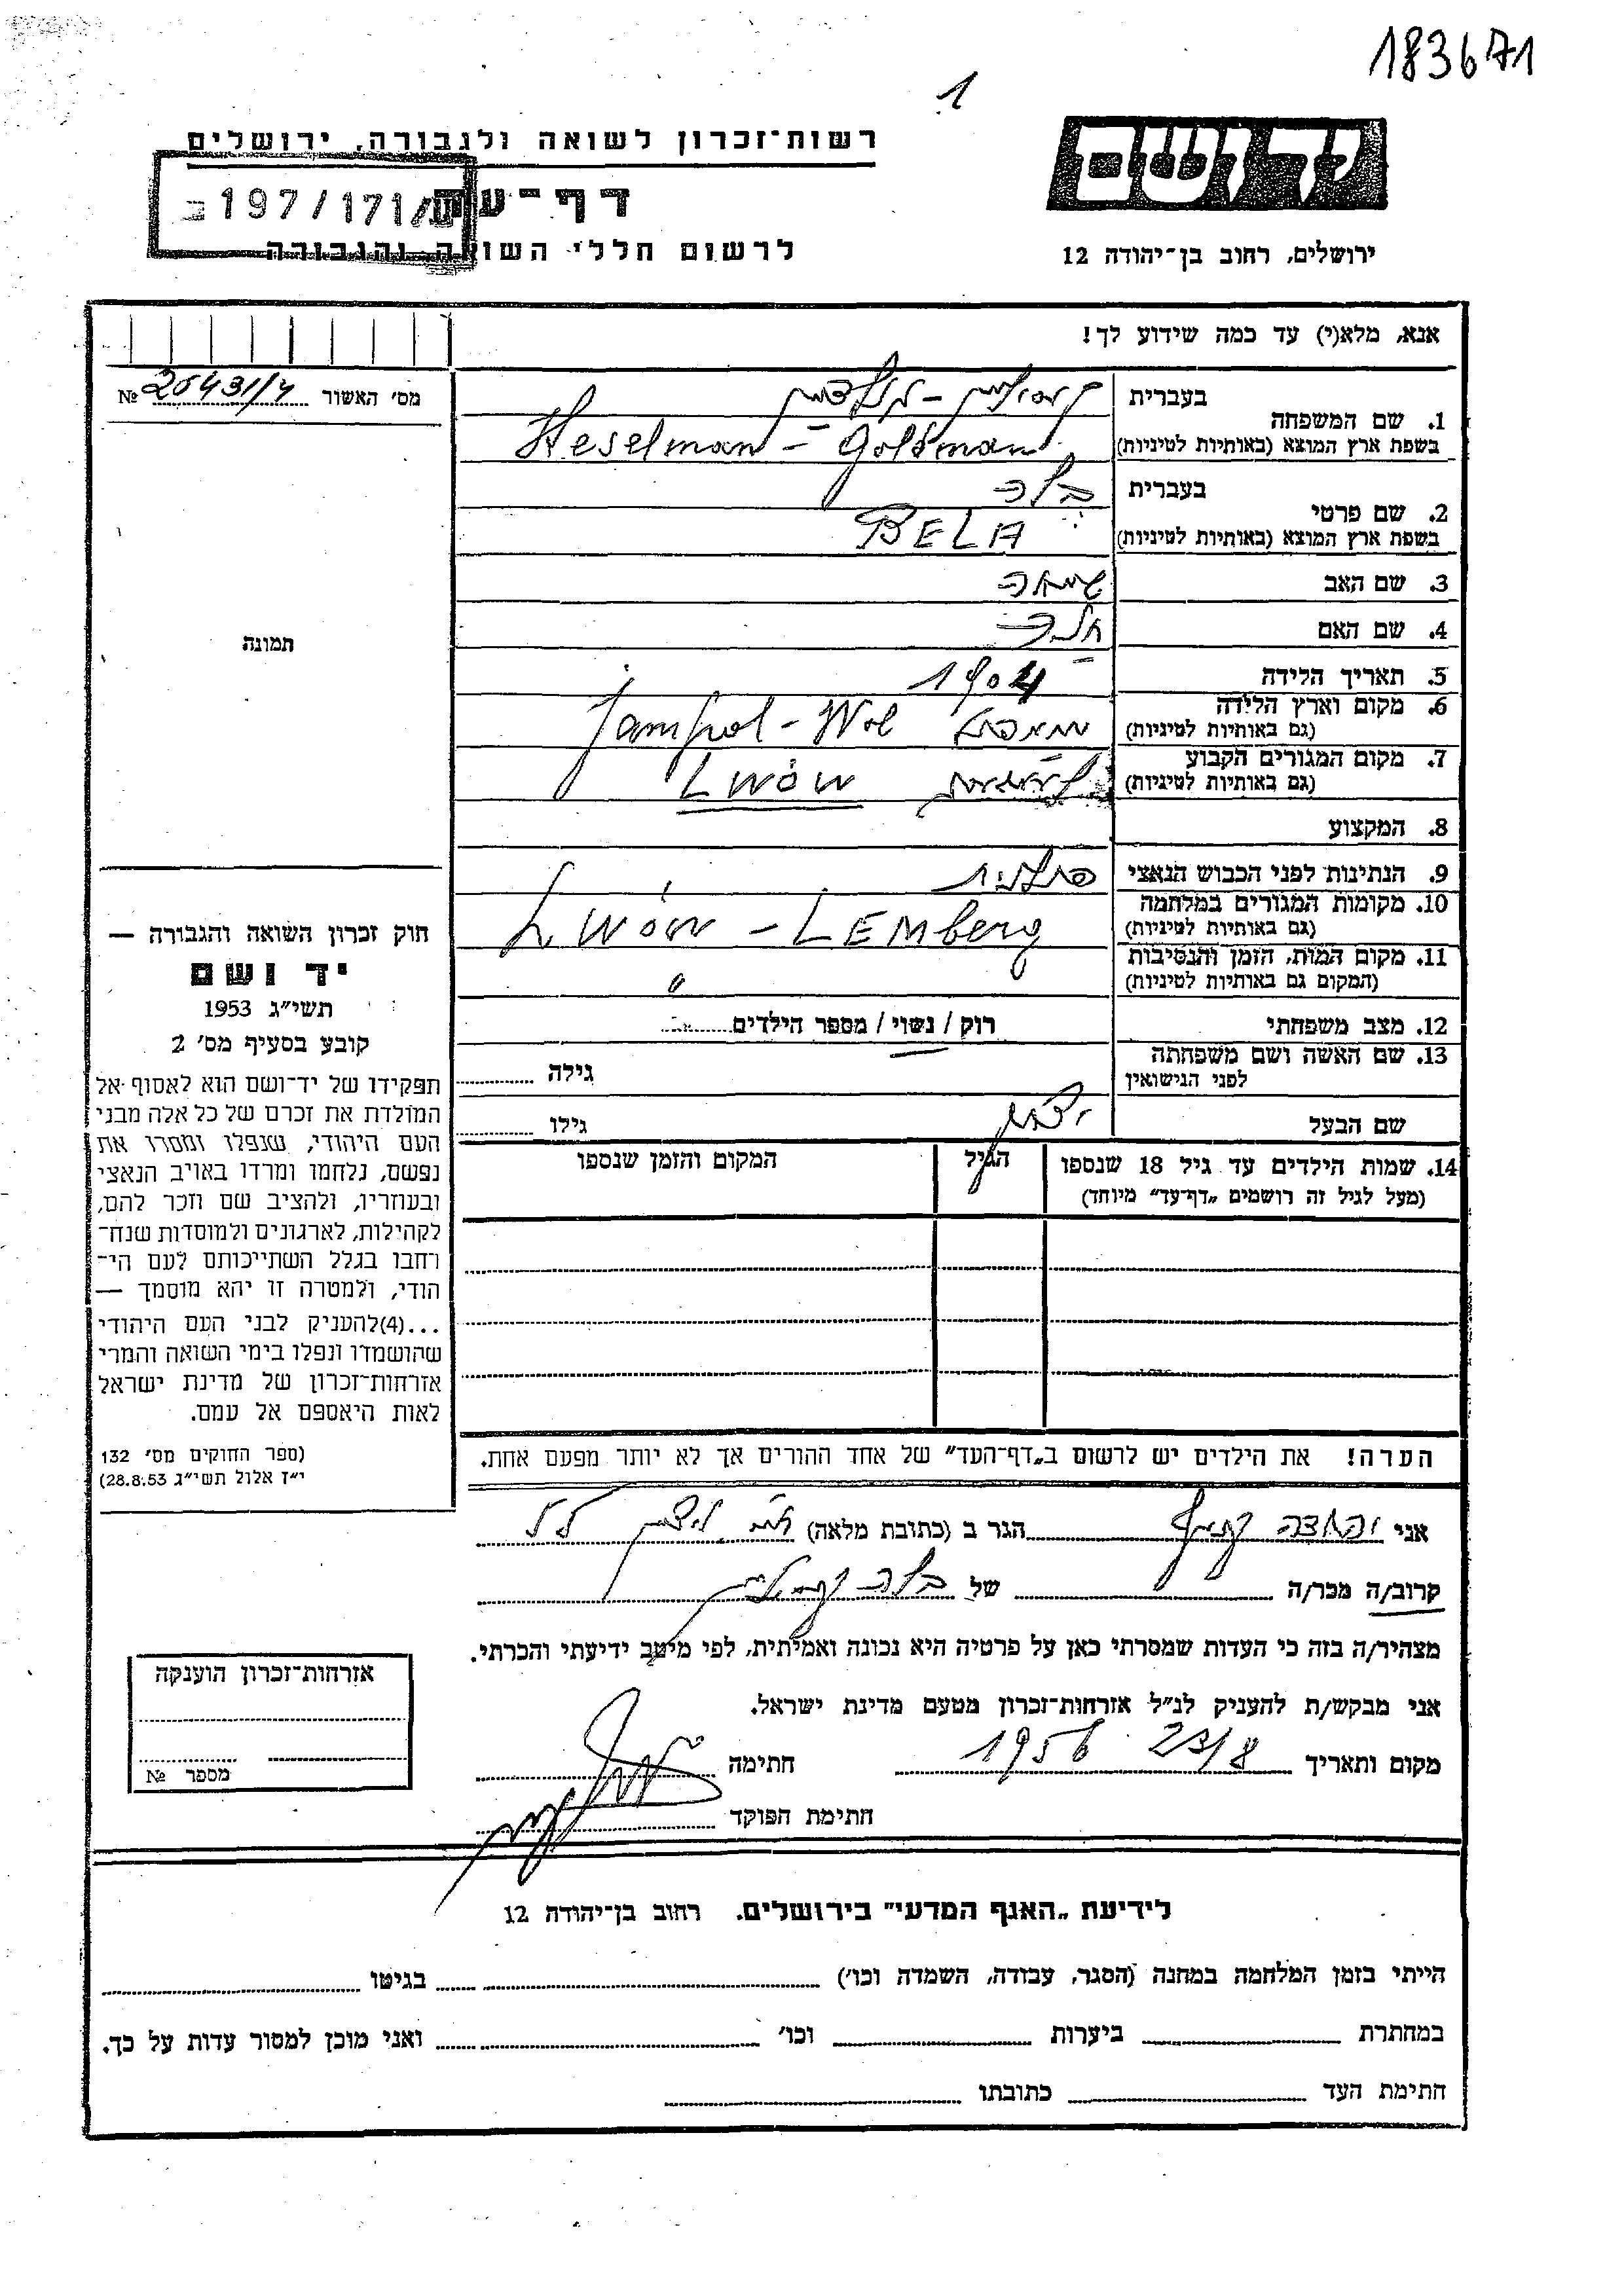 183671
1
רשות־זכרון לשואה ולגבורה, ירושלים
יד ושם
197/171/
דף־עד
לרשום חללי השואה והגבורה
ירושלים, רחוב בן־יהודה 12
אנא, מלא(י) עד כמה שידוע לך!
מס' האשור 20431/4 №
1. שם המשפחה
בעברית
בשפת ארץ המוצא (באותיות לטיניות) Heselman - Goldman
2. שם פרטי
בעברית בלה
בשפת ארץ המוצא (באותיות לטיניות) BELA
3. שם האב
4. שם האם
5. תאריך הלידה 1904
6. מקום וארץ הלידה
(גם באותיות לטיניות) Jampol - Wol
7. מקום המגורים הקבוע
(גם באותיות לטיניות) Lwów
8. המקצוע
9. הנתינות לפני הכבוש הנאצי פולנית
10. מקומות המגורים במלחמה
(גם באותיות לטיניות) Lwów - LEMberg
11. מקום המות, הזמן והנסיבות
(המקום גם באותיות לטיניות) "
12. מצב משפחתי רוק / נשוי / מספר הילדים
13. שם האשה ושם משפחתה
לפני הנישואין
גילה
שם הבעל
גילו
14. שמות הילדים עד גיל 18 שנספו
(מעל לגיל זה רושמים „דף־עד" מיוחד)
הגיל
המקום והזמן שנספו
הערה! את הילדים יש לרשום ב„דף־העד" של אחד ההורים אך לא יותר מפעם אחת.
תמונה
חוק זכרון השואה והגבורה —
יד ושם
תשי"ג 1953
קובע בסעיף מס' 2
תפקידו של יד־ושם הוא לאסוף אל
המולדת את זכרם של כל אלה מבני
העם היהודי, שנפלו ומסרו את
נפשם, נלחמו ומרדו באויב הנאצי
ובעוזריו, ולהציב שם וזכר להם,
לקהילות, לארגונים ולמוסדות שנח־
רבו בגלל השתייכותם לעם הי־
הודי, ולמטרה זו יהא מוסמך —
...(4) להעניק לבני העם היהודי
שהושמדו ונפלו בימי השואה והמרי
אזרחות־זכרון של מדינת ישראל
לאות היאספם אל עמם.
(ספר החוקים מס' 132
י"ז אלול תשי"ג 28.8.53)
אני הגר ב (כתובת מלאה)
קרוב/ה מכר/ה של בלה
מצהיר/ה בזה כי העדות שמסרתי כאן על פרטיה היא נכונה ואמיתית, לפי מיטב ידיעתי והכרתי.
אני מבקש/ת להעניק לנ"ל אזרחות־זכרון מטעם מדינת ישראל.
מקום ותאריך 23/8 1956 חתימה
חתימת הפוקד
אזרחות־זכרון הוענקה
מספר №
לידיעת „האגף המדעי" בירושלים. רחוב בן־יהודה 12
הייתי בזמן המלחמה במחנה (הסגר, עבודה, השמדה וכו') בגיטו
במחתרת ביערות וכו' ואני מוכן למסור עדות על כך.
חתימת העד כתובתו